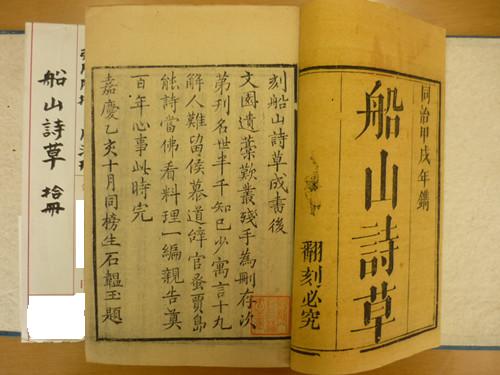 同治甲戌年鐫
船山詩草
翻刻必究
刻船山詩草成書後
文園遺藁歎叢殘手為刪存次
第刊名世半千知已少寓言十九
解人難留侯慕道辭官蚤賈島
能詩當佛看料理一編親告奠
百年心事此時完
嘉慶乙亥十月同榜生石韞玉題
船山詩草 拾冊